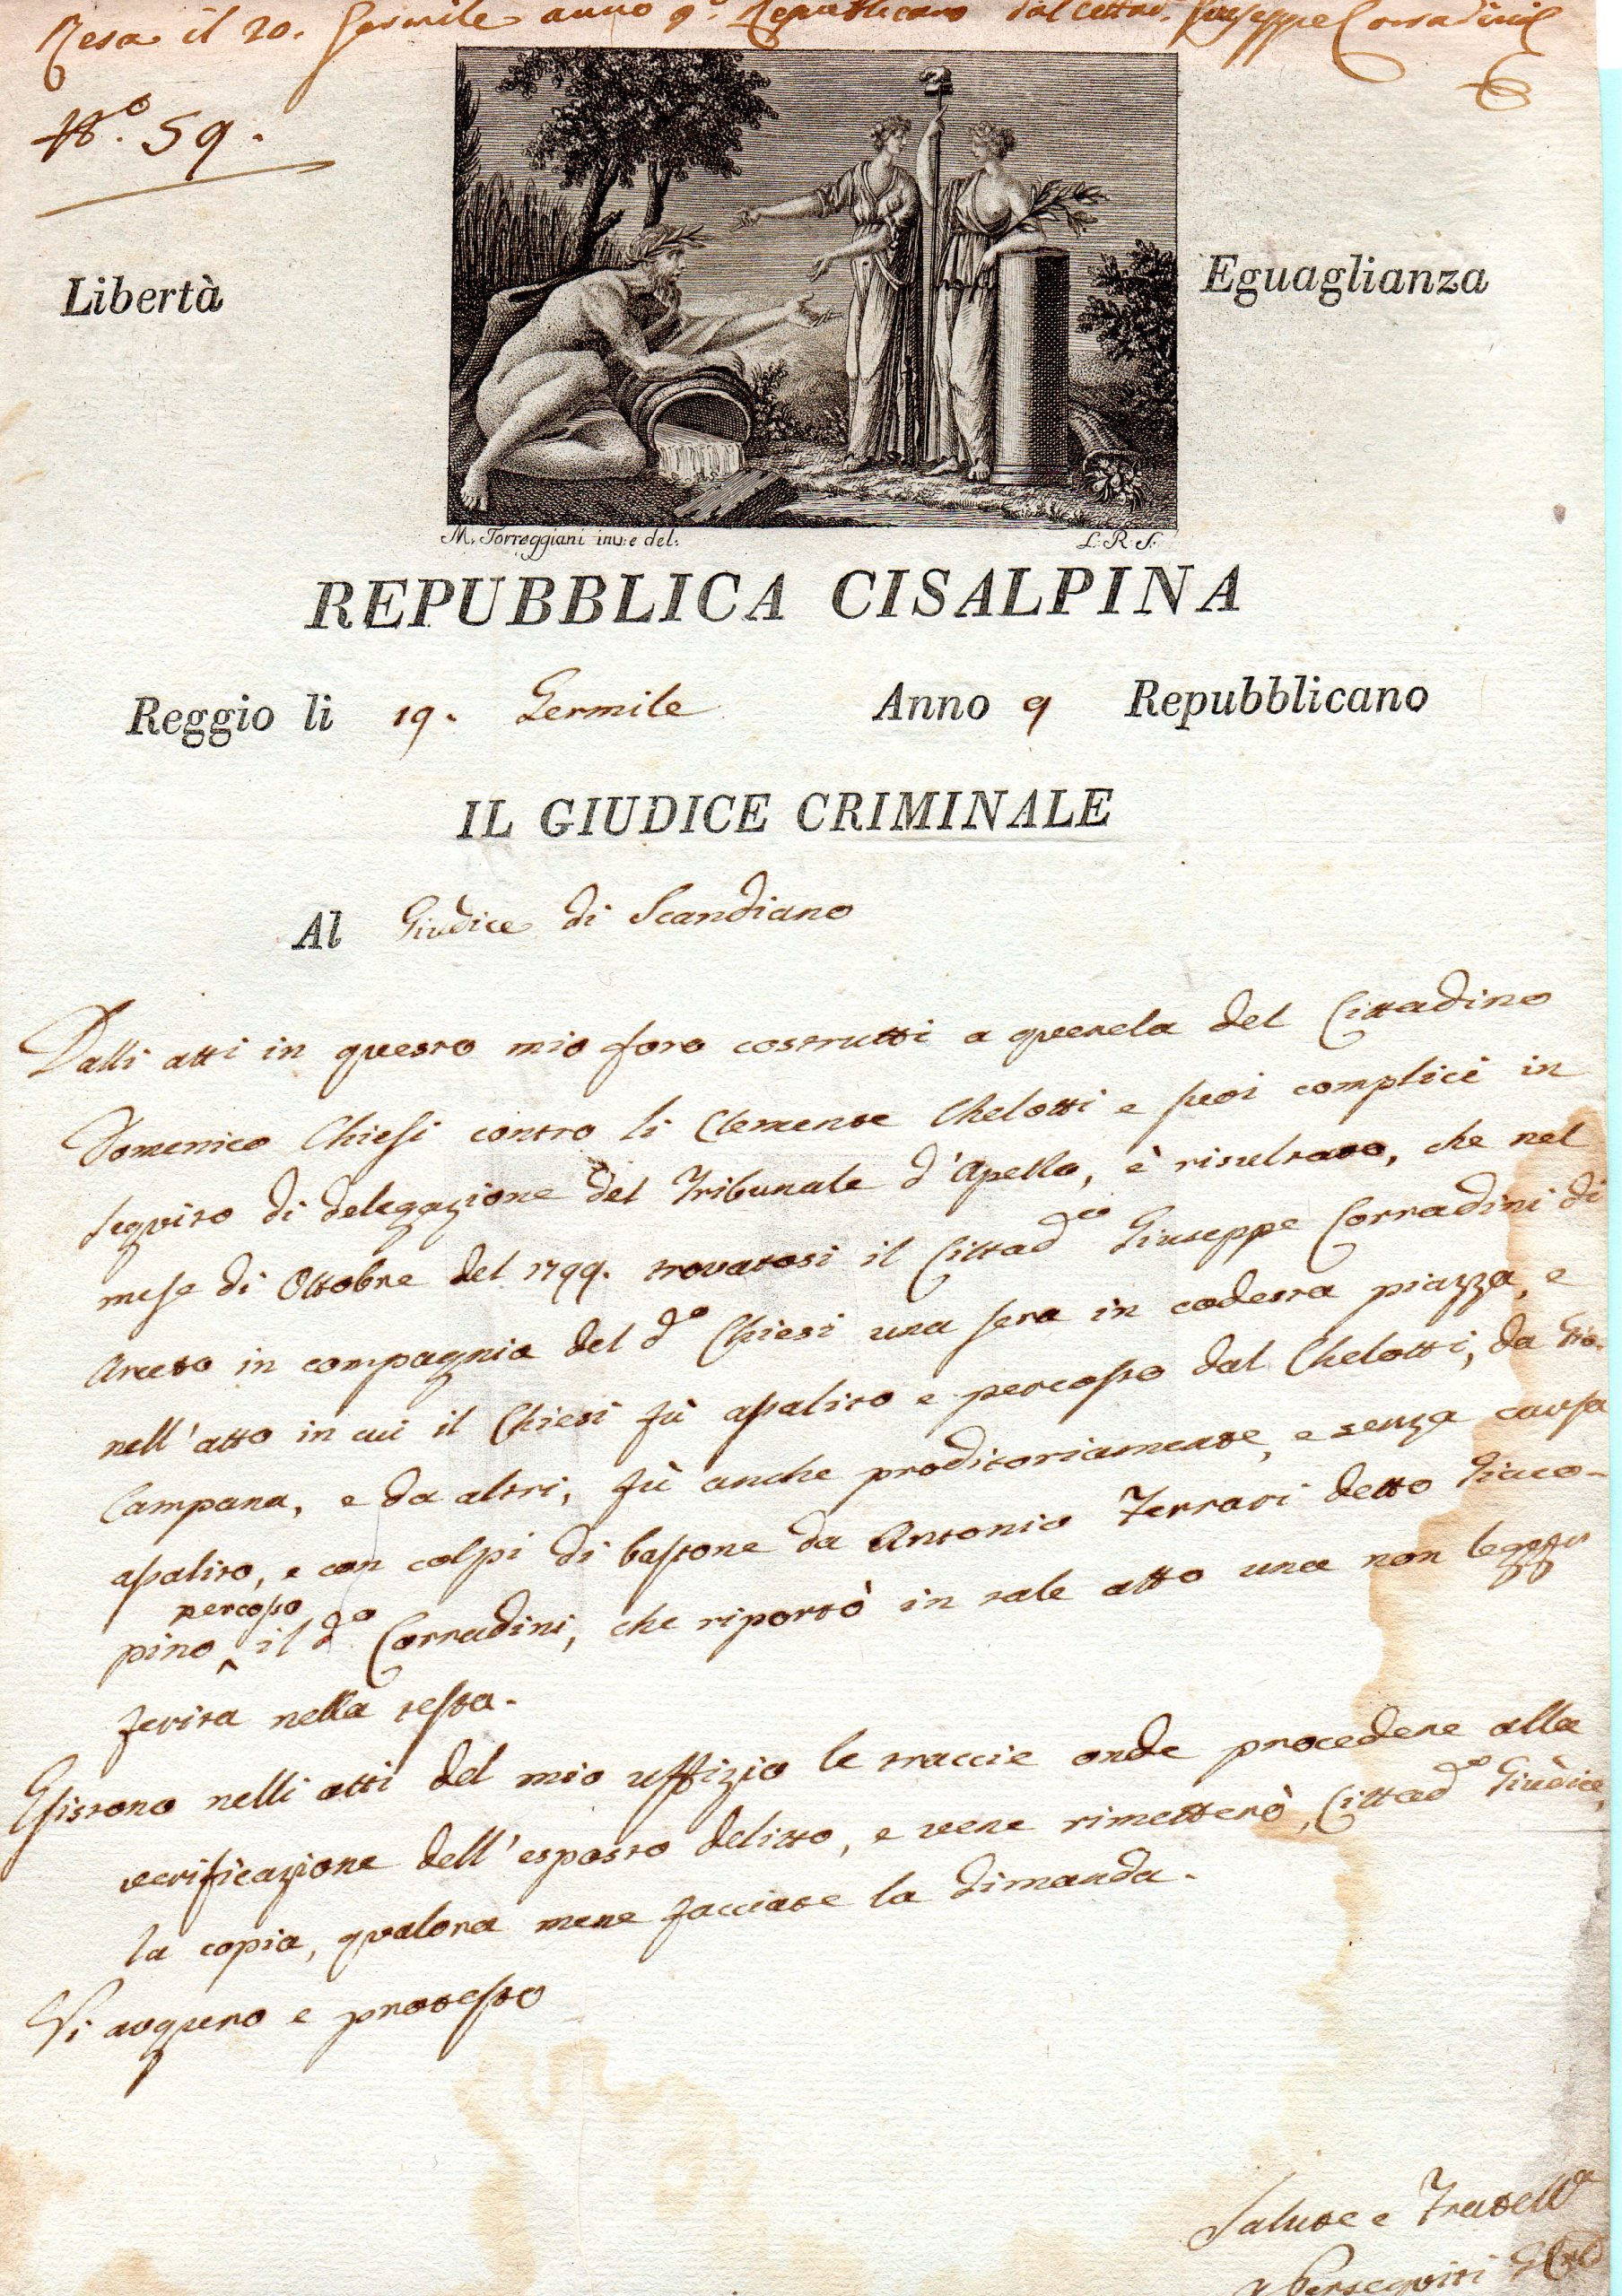 Resa il 20. Germile anno 9.º Republicano dal Cittad. Giuseppe Corradini
N.º 59.
Libertà
Eguaglianza
M. Torreggiani inv: e del:
L. R. S.
REPUBBLICA CISALPINA
Reggio li 19. Germile Anno 9 Repubblicano
IL GIUDICE CRIMINALE
Al Giudice di Scandiano
Dalli atti in questo mio foro costrutti a querela del Cittadino
Domenico Chiesi contro li Clemente Chelotti e suoi complici in
seguito di delegazione del Tribunale d'Apello, è risultato, che nel
mese di Ottobre del 1799. trovatosi il Cittad.º Giuseppe Corradini di
Arceto in compagnia del d.º Chiesi una sera in codesta piazza, e
nell'atto in cui il Chiesi fù assalito e percosso dal Chelotti, da Gio.
Campana, e da altri, fù anche proditoriamente, e senza causa
assalito, e con colpi di bastone da Antonio Ferrari detto Giaco-
percosso
pino ^ il d.º Corradini, che riportò in tale atto una non leggier
ferita nella testa.
Esistono nelli atti del mio uffizio le traccie onde procedere alla
verificazione dell'esposto delitto, e vene rimetterò, Cittad.º Giudice,
la copia, qualora mene facciate la dimanda.
Vi auguro e protesto
Salute e Fratell.ª